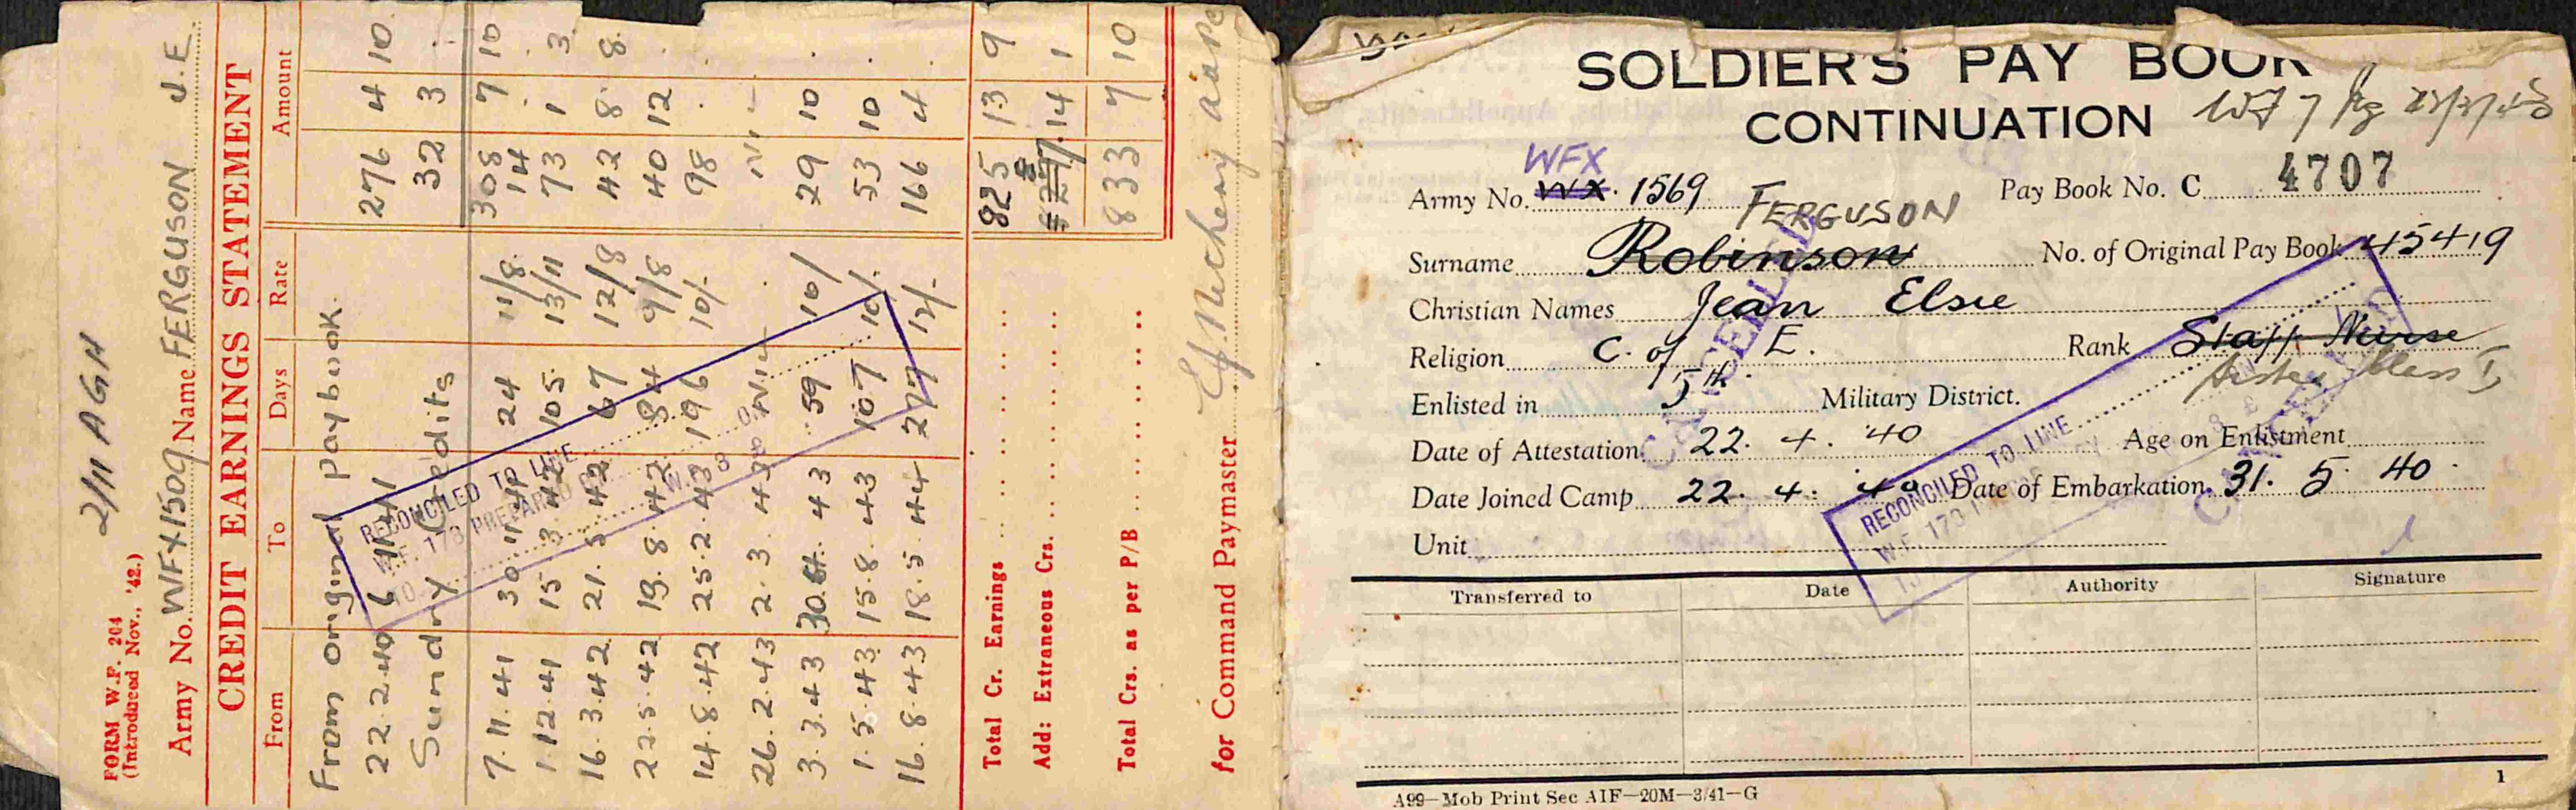 FORM W.F. 204
(Introduced Nov., '42.)
2/11 AGH
Army No. WFX1509 Name FERGUSON J.E.
CREDIT EARNINGS STATEMENT
From To Days Rate Amount
From original paybook
22.2.40 6 11 41 276 4 10
Sundry Credits 32 3 .
308 7 10
7.11.41 30 11 41 24 11/8 14 . .
1.12.41 15 3 42 105 13/11 73 1 3
16.3.42 21.5 42 67 12/8 42 8 8
22.5.42 13.8.42 84 9/8 40 12 .
14.8.42 25.2.43 196 10/- 98 . .
26.2.43 2.3.43 Nil . Nil -
3.3.43 30.4.43 59 10/ 29 10 .
1.5.43 15.8.43 107 10/- 53 10 .
16.8.43 18.5.44 277 12/- 166 4 .
RECONCILED TO LINE
W.F. 173 PREPARED
Total Cr. Earnings 825 13 9
Add: Extraneous Crs. 7 14 1
Total Crs. as per P/B 833 7 10
for Command Paymaster
SOLDIER'S PAY BOOK
CONTINUATION
WFX
Army No. WX. 1569 Pay Book No. C 4707
FERGUSON
Surname Robinson No. of Original Pay Book 45419
Christian Names Jean Elsie
Religion C. of E. Rank Staff Nurse
Sister Class I
Enlisted in 5th Military District.
Date of Attestation 22. 4. '40 Age on Enlistment
Date Joined Camp 22. 4. 40 Date of Embarkation 31. 5. 40.
Unit
CANCELLED
CANCELLED
RECONCILED TO LINE
W.F. 173
Transferred to Date Authority Signature
1
A99—Mob Print Sec AIF—20M—3/41—G